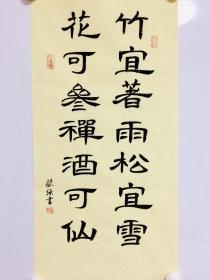 竹宜著雨松宜雪
花可參禪酒可仙